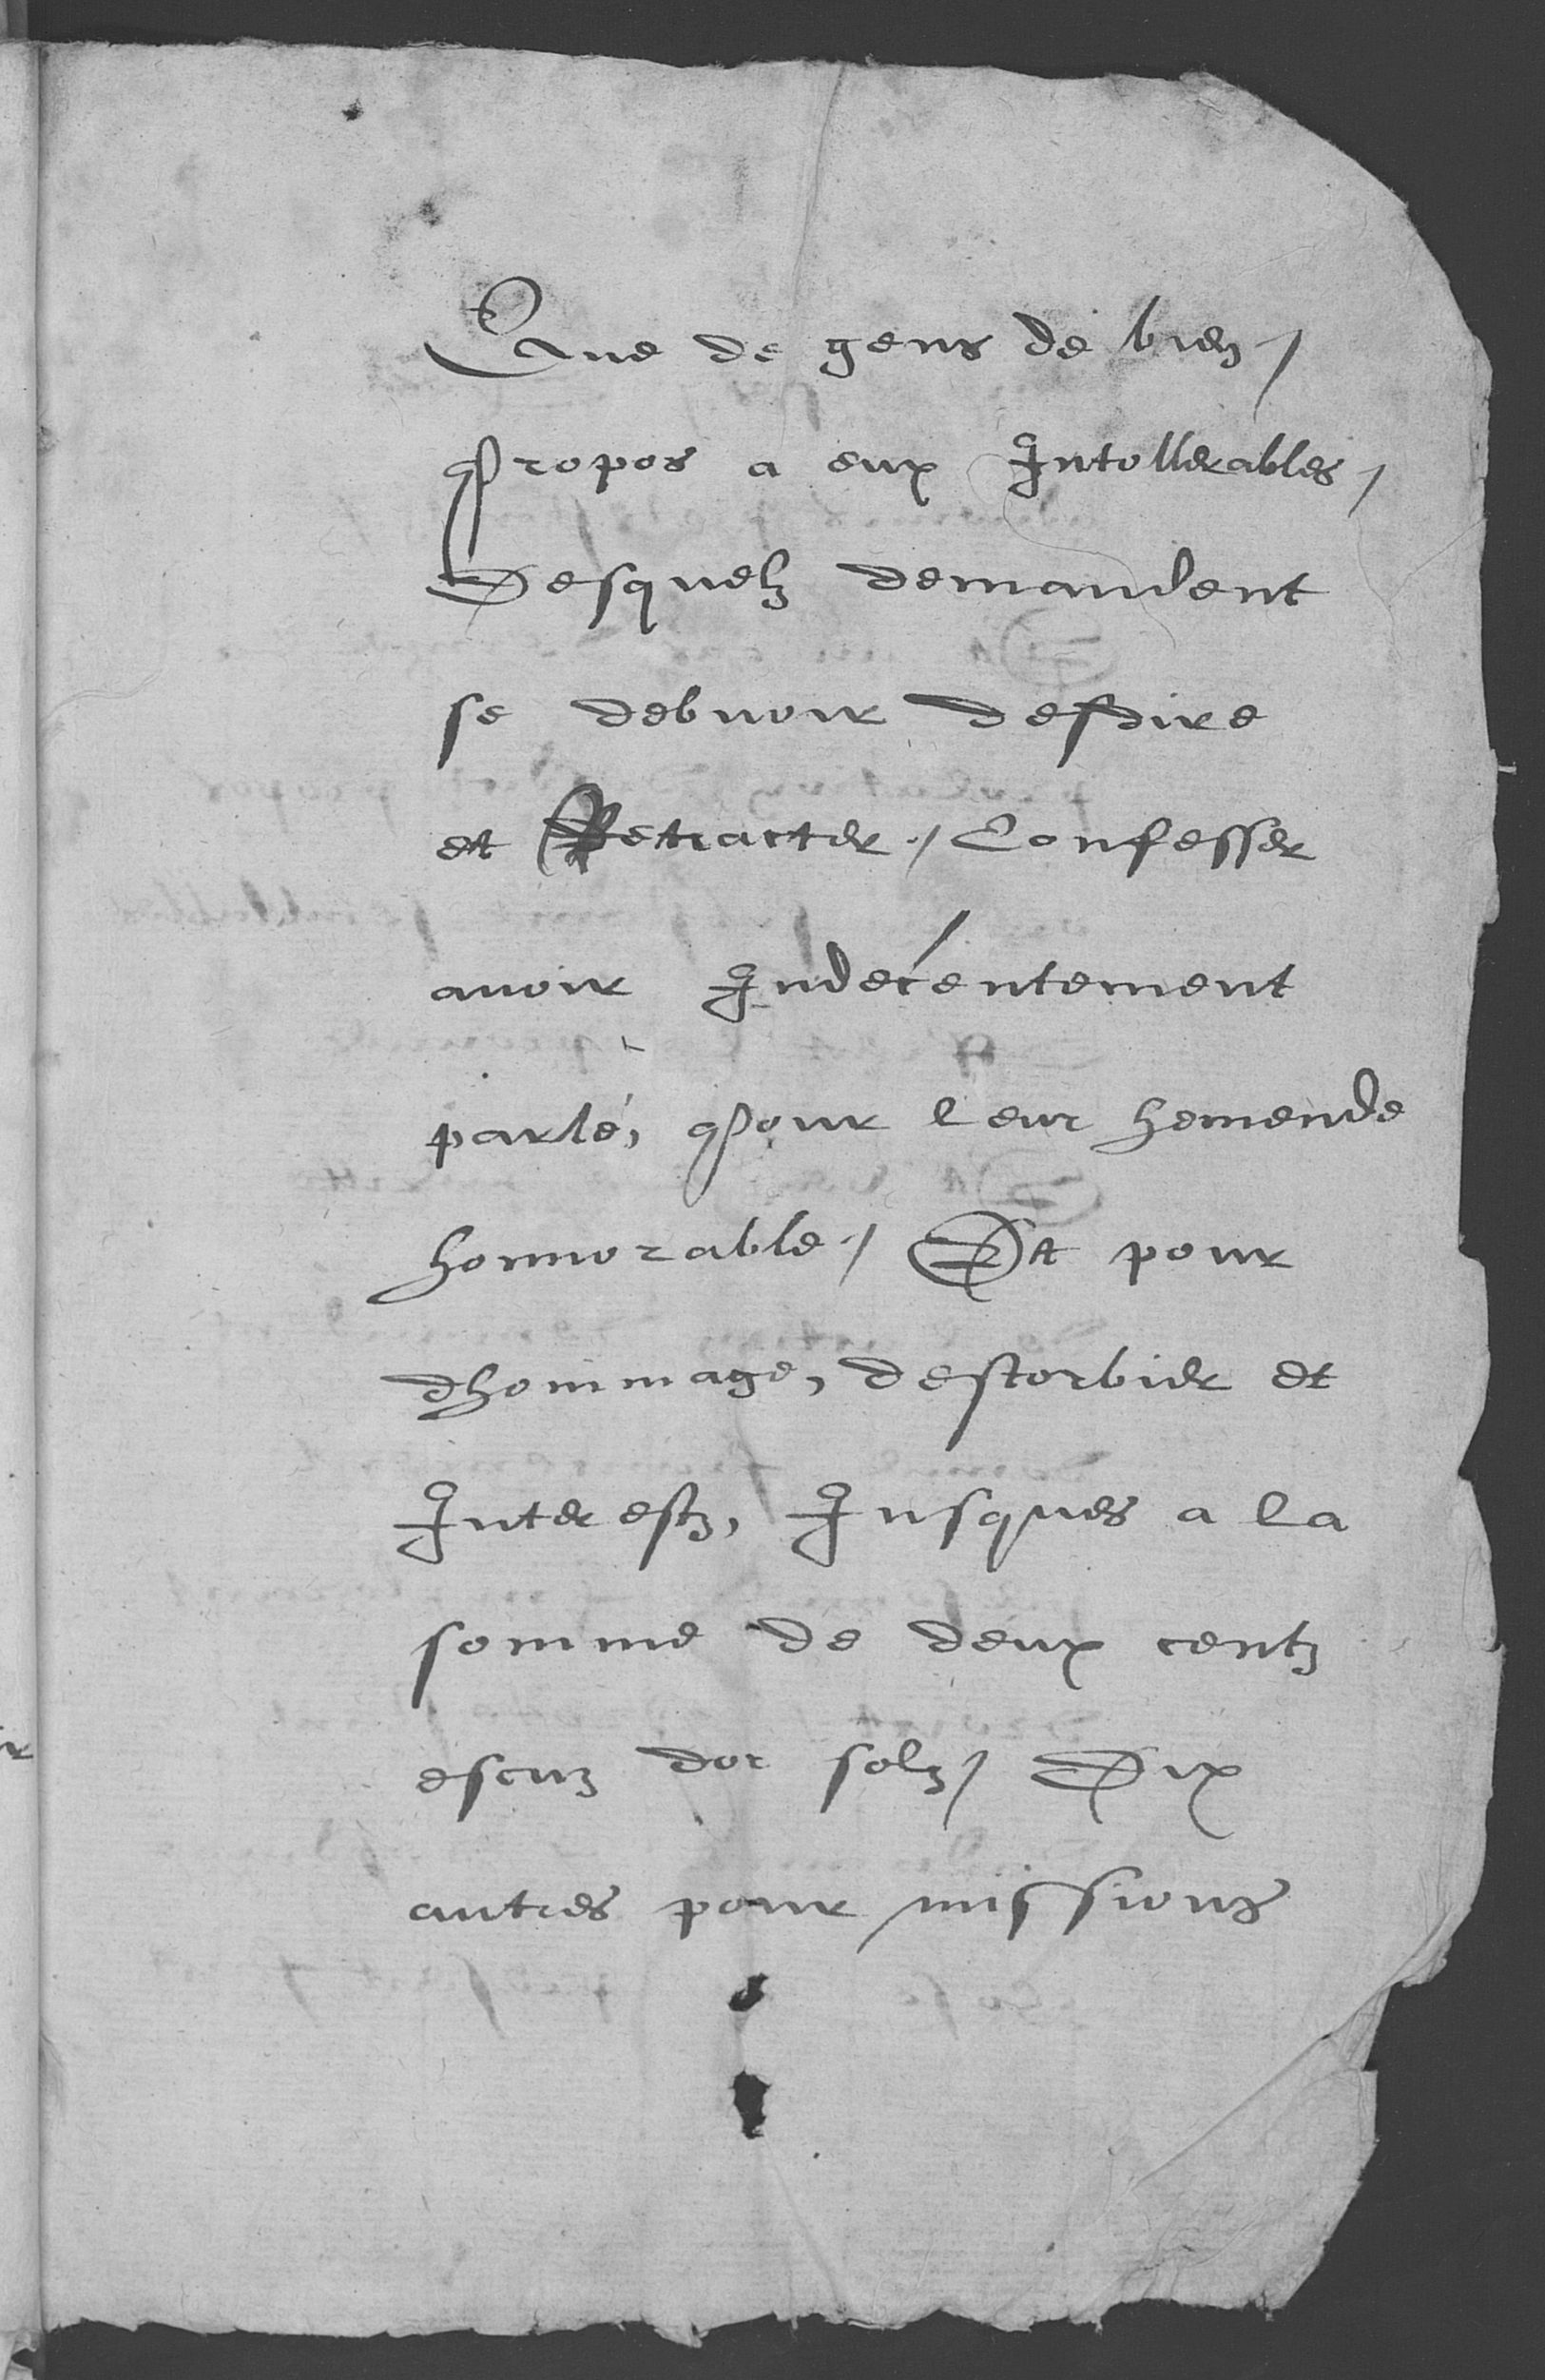 Que de gens de bien /
Propos a eux Intollerables /
Desquelz demandent
se debuoir desdire
et Retracter ./ Confesser
auoir Indecentement
parlé, Pour leur hemende
honnorable ./ Et pour
dhommage, destorbier et
Interestz, Jusques a la
somme de deux centz
escuz dor solz / Dix
autres pour missions